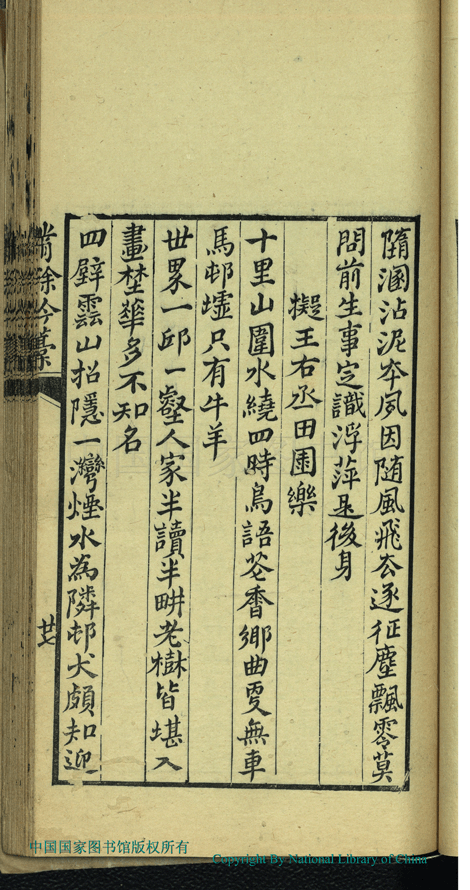 隋溷沾泥夲夙因随風飛厺逐征塵飄零莫
問前生事定識浮萍是後身
擬王右丞田園樂
十里山圍水繞四時鳥語芲香鄉曲更無車
馬邨墟只有牛羊
世界一邱一壑人家半讀半畊老樹皆堪入
畫埜華多不知名
四壁雲山招隱一灣煙水為隣邨犬頗知迎
餘今藁
廿七
中国国家图书馆版权所有
Copyright By National Library of China